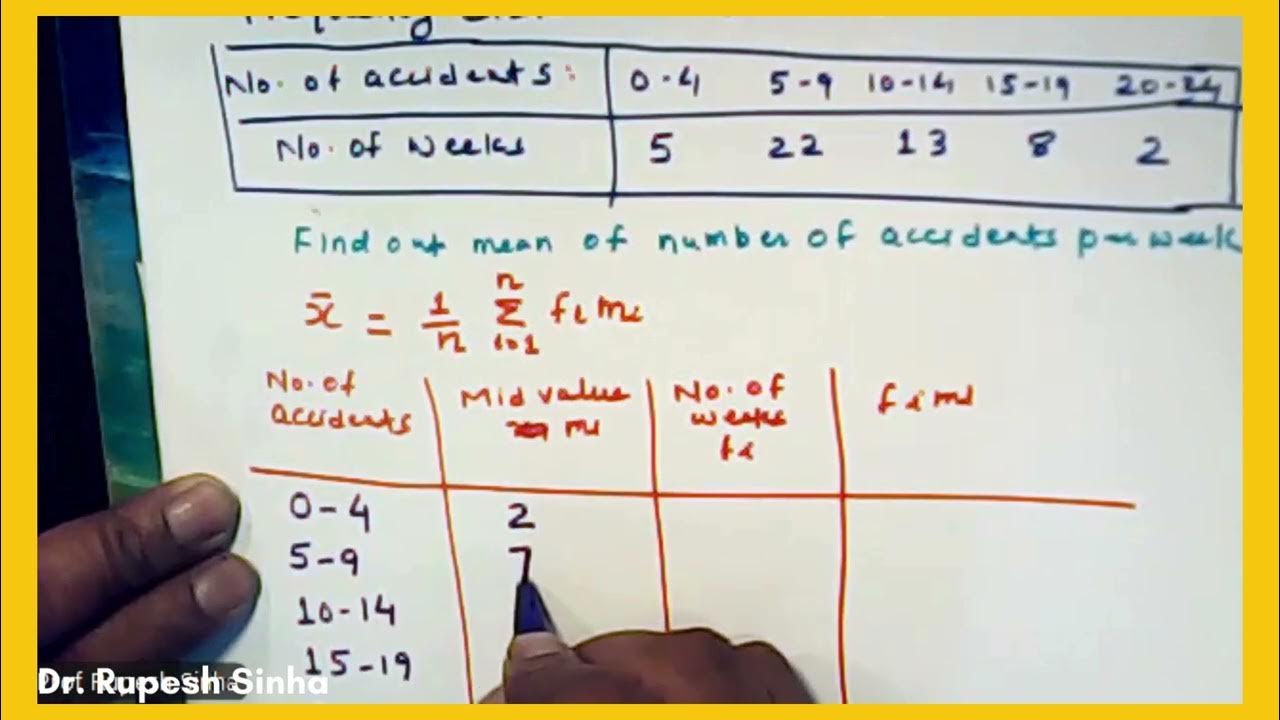 No. of accidents : 0-4 5-9 10-14 15-19 20-24
No. of weeks 5 22 13 8 2
Find out mean of number of accidents per week
x̄ = 1/n n Σ i=1 fi mi
No. of accidents Mid value mi No. of weeks fi fi mi
0-4 2
5-9 7
10-14
15-19
Dr. Rupesh Sinha